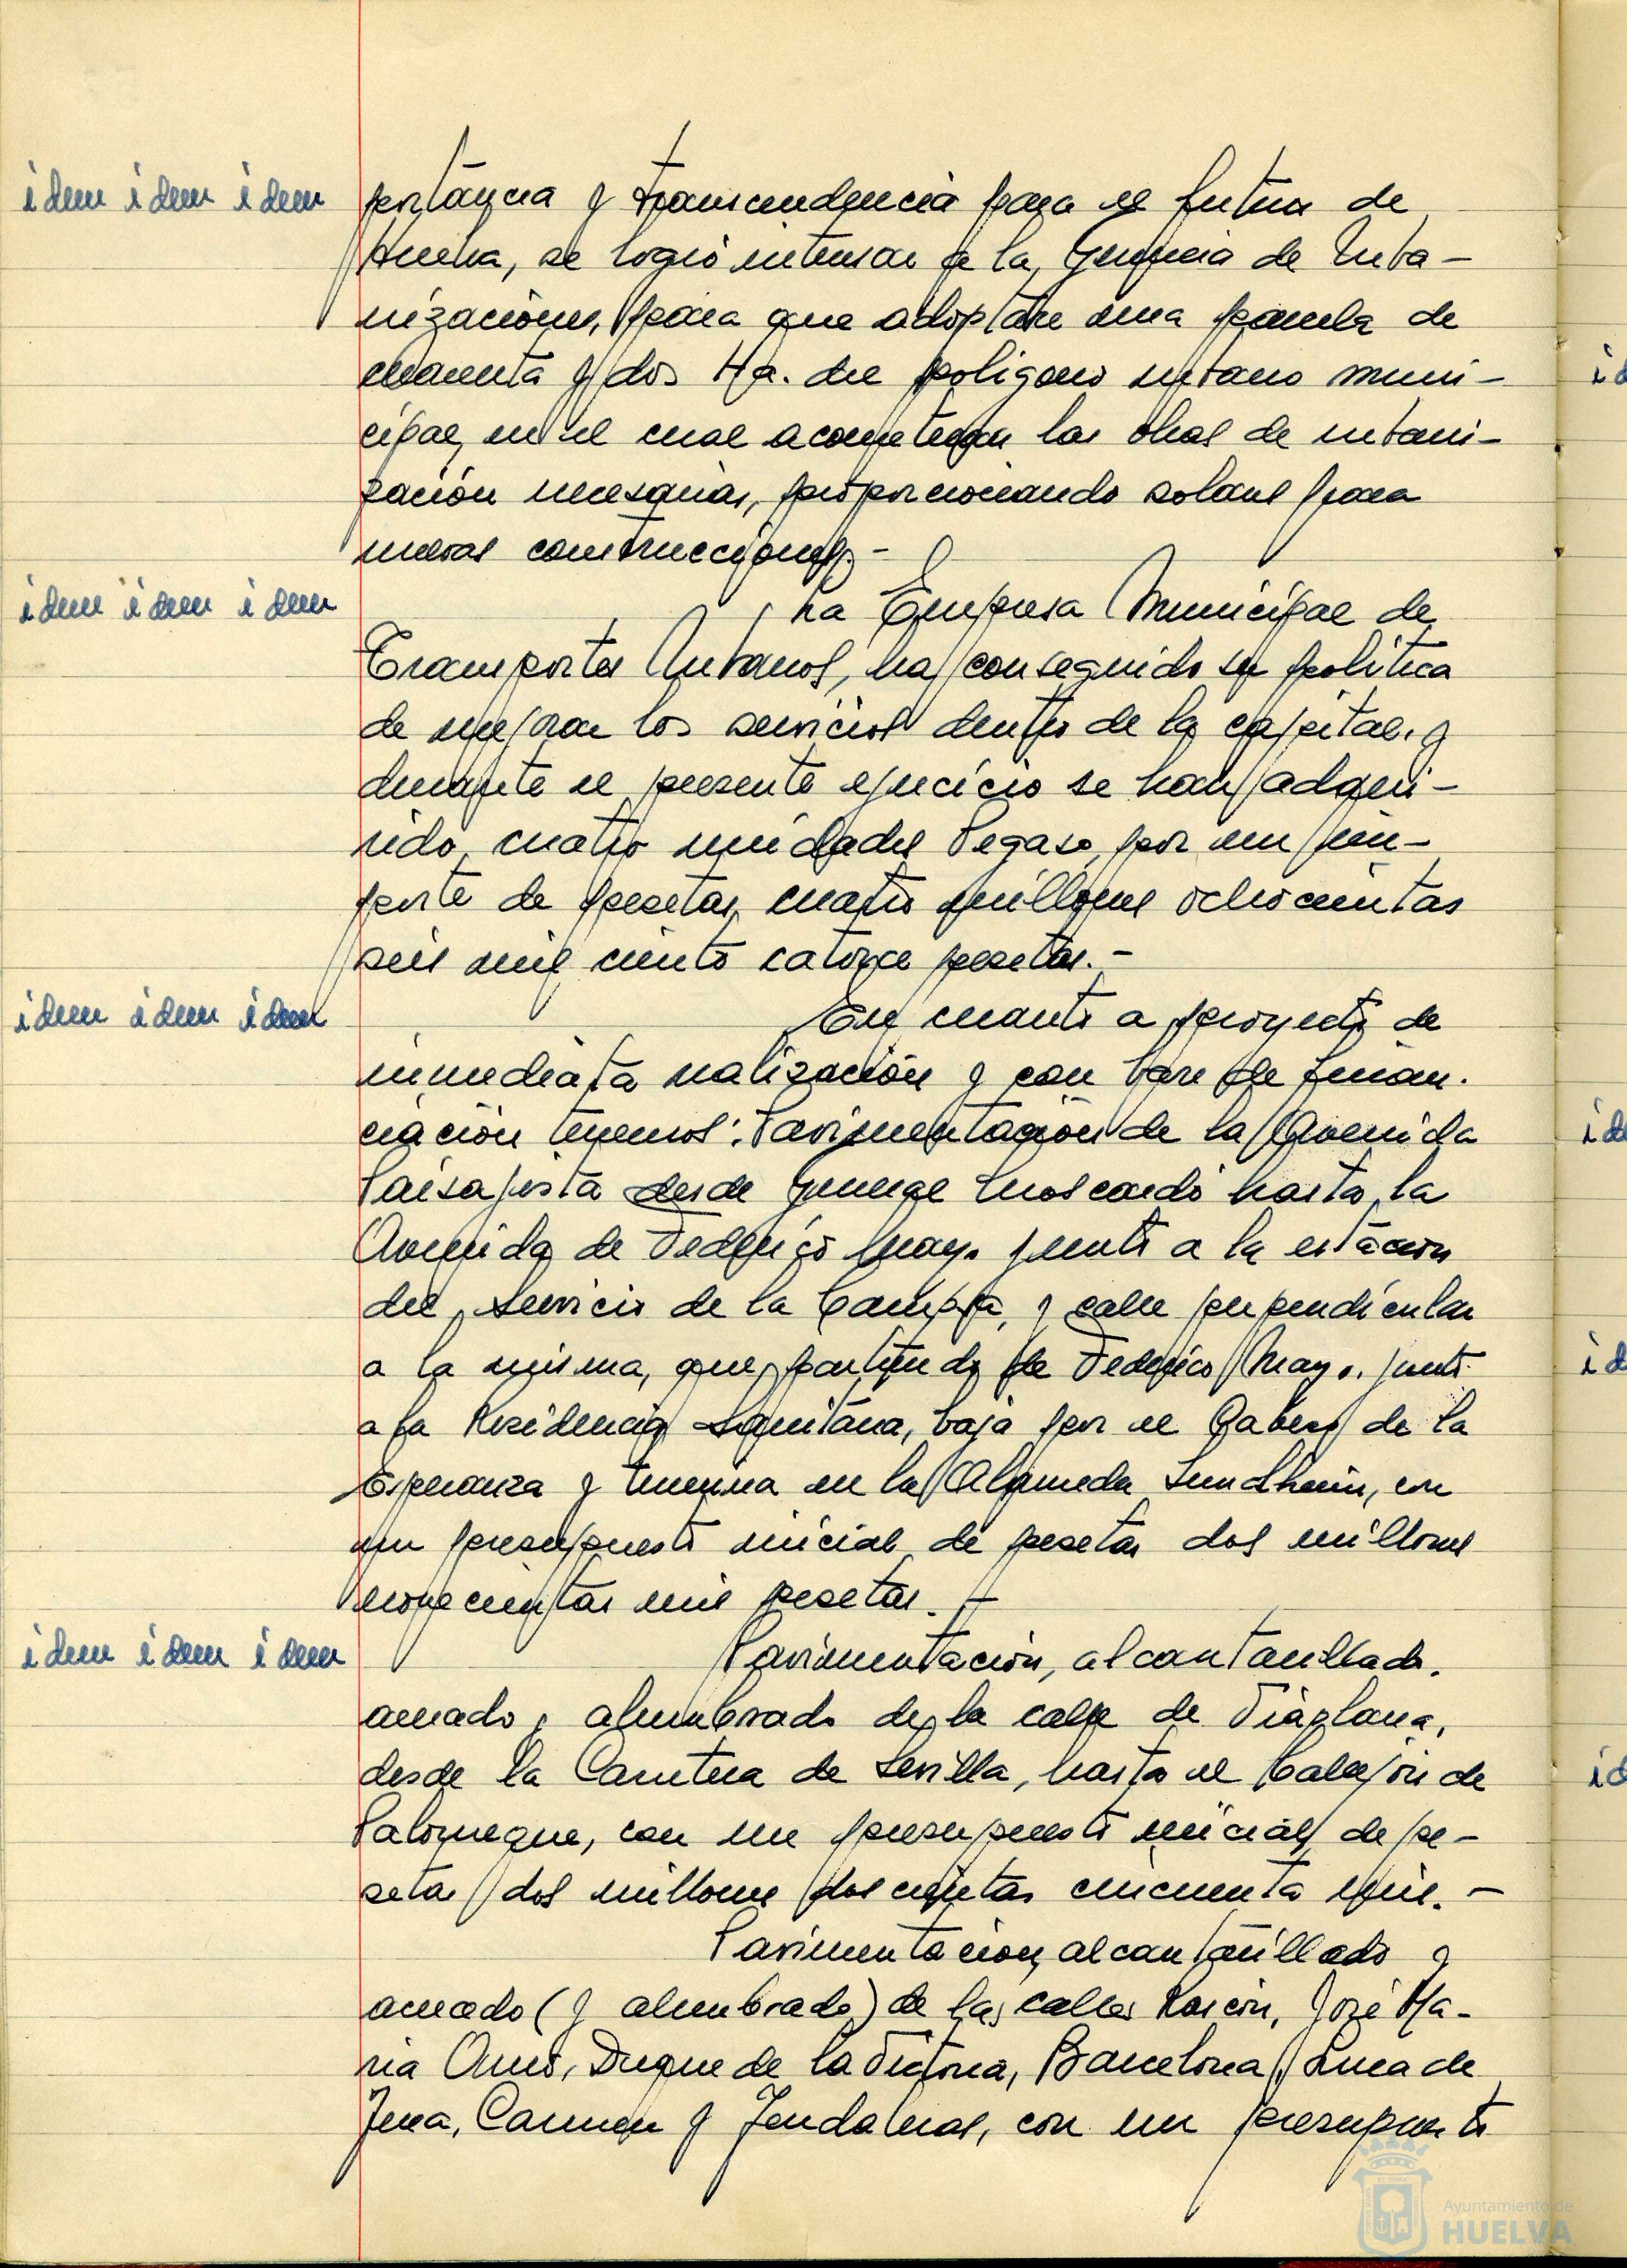 idem idem idem
portancia y transcendencia para el futuro de
Huelva, se logró interesar a la Gerencia de Urba-
nizaciones, para que adoptare una parcela de
cuarenta y dos Ha. del polígono urbano muni-
cipal, en el cual acometeran las obras de urbani-
zación necesarias, proporcionando solares para
nuevas construcciones.-
idem idem idem
La Empresa Municipal de
Transportes Urbanos, ha conseguido su política
de mejorar los servicios dentro de la capital, y
durante el presente ejercicio se han adqui-
rido cuatro unidades Pegaso, por un im-
porte de pesetas, cuatro millones ochocientas
seis mil ciento catorce pesetas.-
idem idem idem
En cuanto a proyecto de
inmediata realización y con base de finan.
ciación tenemos: Pavimentación de la Avenida
Paisajista desde General Moscardó hasta la
Avenida de Federico Mayo junto a la estación
del Servicio de la Campsa, y calle perpendicular
a la misma, que partiendo de Federico Mayo, junto
a la Residencia Sanitaria, baja por el Cabezo de la
Esperanza y termina en la Alameda Sundheim, con
un presupuesto inicial de pesetas dos millones
novecientas mil pesetas.-
idem idem idem
Pavimentación, alcantarillado,
acerado, alumbrado de la calle de Viaplana,
desde la Carretera de Sevilla, hasta el Callejón de
Palomeque, con un presupuesto inicial de pe-
setas dos millones doscientas cincuenta mil.-
Pavimentación, alcantarillado y
acerado (y alumbrado) de las calles Rascón, José Ma-
ria Amo, Duque de la Victoria, Barcelona, de
Jesca, Carmen y Fendaleras, con un presupuesto
Ayuntamiento de
HUELVA